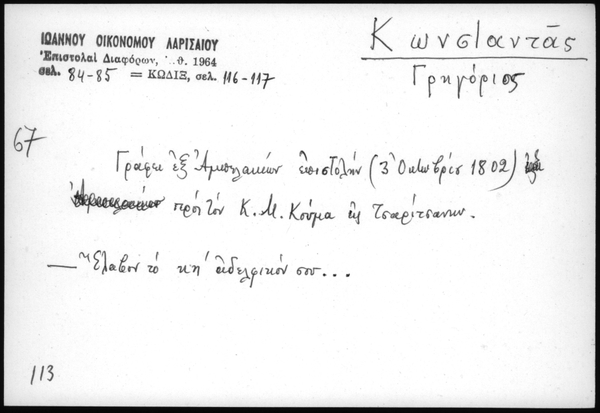 ΙΩΑΝΝΟΥ ΟΙΚΟΝΟΜΟΥ ΛΑΡΙΣΑΙΟΥ
Ἐπιστολαὶ Διαφόρων, Ἀθ. 1964
σελ. 84-85 = ΚΩΔΙΞ, σελ. 116-117
Κωνσταντᾶς
Γρηγόριος
67
Γράφει ἐξ Ἀμπελακίων ἐπιστολήν (3 Ὀκτωβρίου 1802)
πρὸς τὸν Κ. Μ. Κούμα εἰς Τσαρίτσανην.
— Ἔλαβον τὸ κ' ἀδελφικόν σου...
113